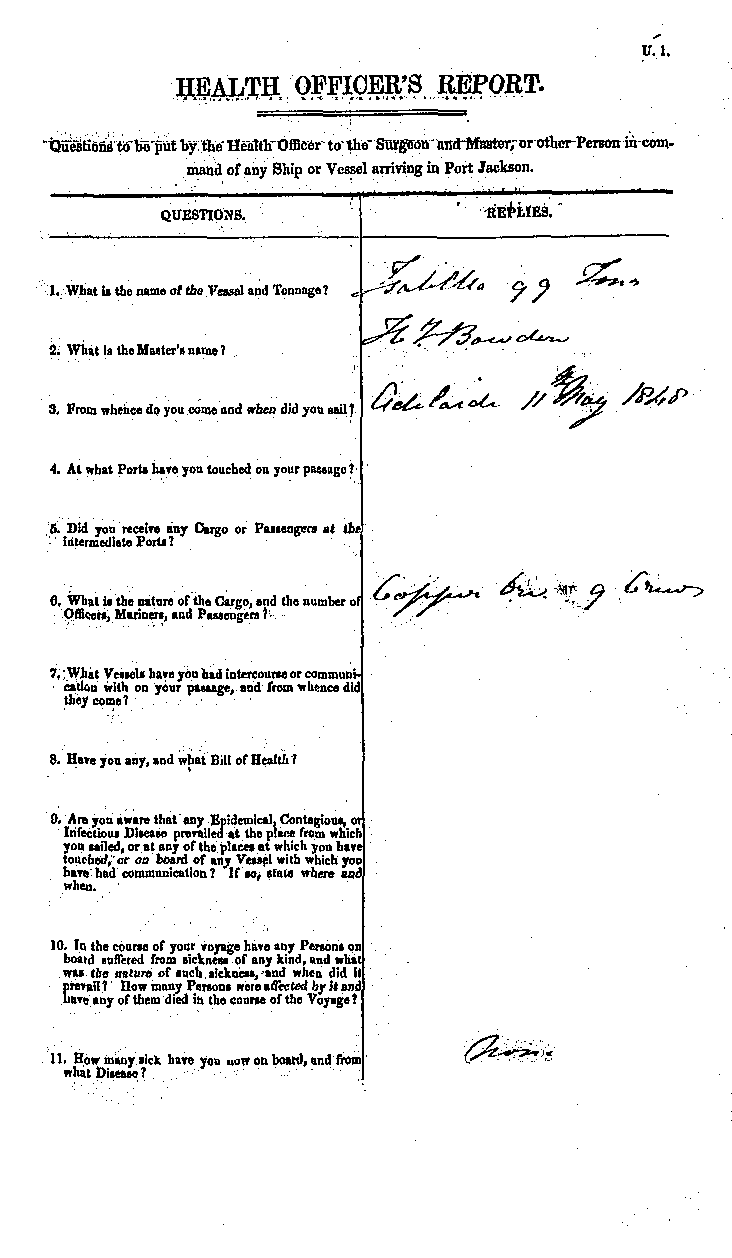 U. 1.
HEALTH OFFICER'S REPORT.
Questions to be put by the Health Officer to the Surgeon and Master, or other Person in com-
mand of any Ship or Vessel arriving in Port Jackson.
QUESTIONS. REPLIES.
1. What is the name of the Vessel and Tonnage? 99 Tons
2. What is the Master's name? H F Bowden
3. From whence do you come and when did you sail? Adelaide 11th May 1848
4. At what Ports have you touched on your passage?
5. Did you receive any Cargo or Passengers at the
intermediate Ports?
6. What is the nature of the Cargo, and the number of Copper Ore 9 Crew
Officers, Mariners, and Passengers?
7. What Vessels have you had intercourse or communi-
cation with on your passage, and from whence did
they come?
8. Have you any, and what Bill of Health?
9. Are you aware that any Epidemical, Contagious, or
Infectious Disease prevailed at the place from which
you sailed, or at any of the places at which you have
touched, or on board of any Vessel with which you
have had communication? If so, state where and
when.
10. In the course of your voyage have any Persons on
board suffered from sickness of any kind, and what
was the nature of such sickness, and when did it
prevail? How many Persons were affected by it and
have any of them died in the course of the Voyage?
11. How many sick have you now on board, and from None
what Disease?